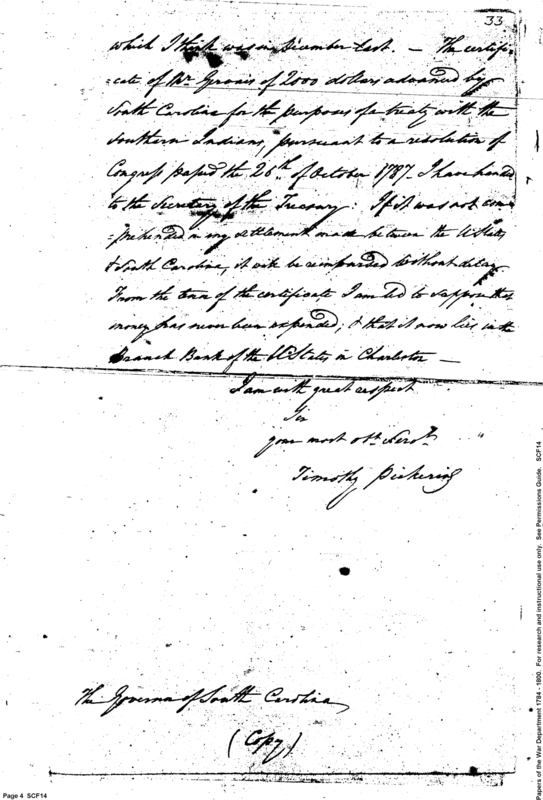 33
which I think was in December last. — The certifi-
=cate of Mr Gervais of 2000 dollars advanced by
South Carolina for the purposes of a treaty with the
Southern Indians, pursuant to a resolution of
Congress passed the 26th of October 1787. I have handed
to the Secretary of the Treasury: If it was not com-
=prehended in any settlement made between the U States
& South Carolina, it will be reimbursed without delay.
From the tenor of the certificate I am led to suppose that
money has never been expended; & that it now lies in the
Branch Bank of the U States in Charleston —
I am with great respect
Sir
your most obt. Servt.
Timothy Pickering
The Governor of South Carolina
(Copy)
Page 4 SCF14
Papers of the War Department 1784 - 1800. For research and instructional use only. See Permissions Guide. SCF14